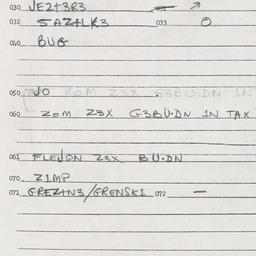 030 JEZ+3R3
032 SAZ+LK3 033
040 BUG
050 JO ZOM Z3X G3BU·DN IN
060 ZOM Z3X G3BU·DN IN TAX
061 FLEJON Z3X BU·DN
070 Z1MP
071 GREZ+N3/GRENSK1 072 —